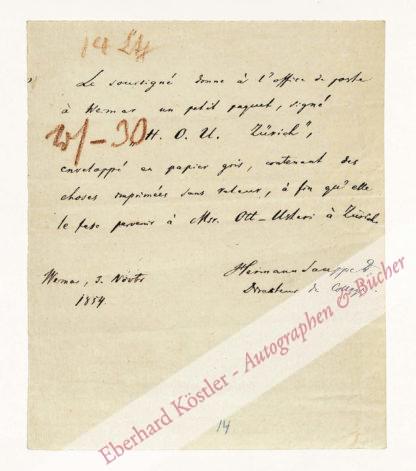 14
Le soussigné donne à l'office de poste
à Wemar un petit paquet, signé
H. O. U. Zürich",
enveloppé en papier gris, contenant des
choses imprimées sans valeur, à fin qu'elle
le fase parvenir à Msr. Ott-Usteri à Zürich
Wemar, 3. Novbr
1854.
Hermann Sauppe D.
Direkteur de
14
Eberhard Köstler - Autographen & Bücher